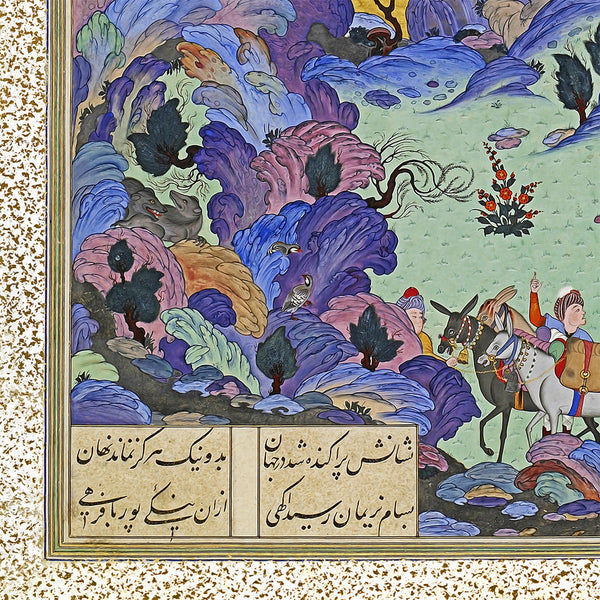 نشانش پراکنده شد در جهان
بد و نیک هرگز نماند نهان
بسام نریمان رسید آگهی
ازان نیک پی پور با فرهی